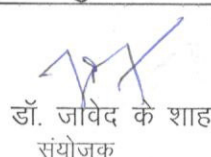 डॉ. जावेद के शाह
संयोजक